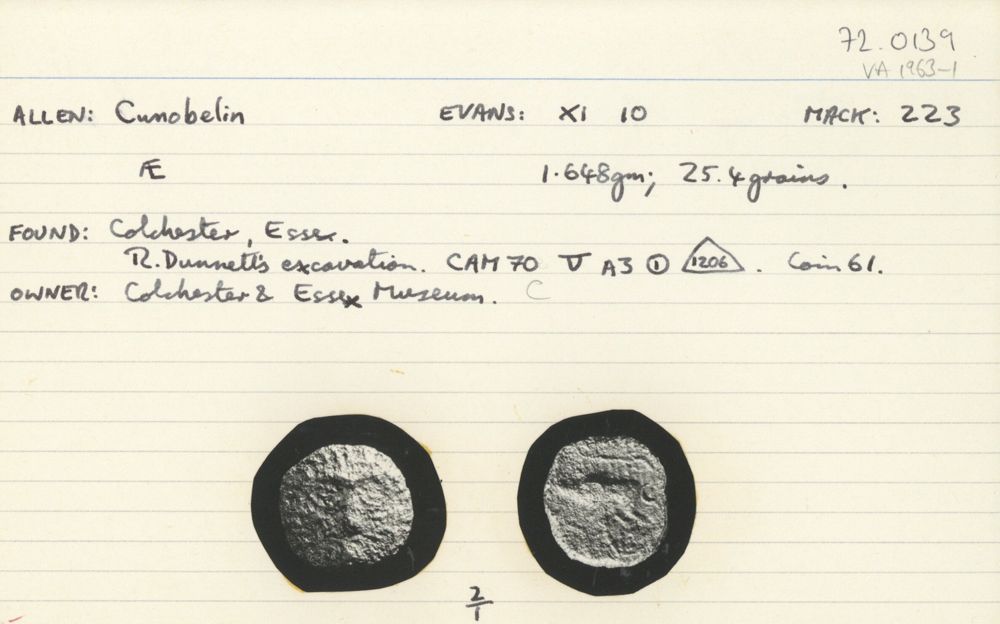 72.0139
VA 1963-1
ALLEN: Cunobelin EVANS: XI 10 MACK: 223
Æ 1.648gm; 25.4grains.
FOUND: Colchester, Essex.
R.Dunnett's excavation. CAM 70 V A3 ① 1206. Coin 61.
OWNER: Colchester & Essex Museum. C
2/1